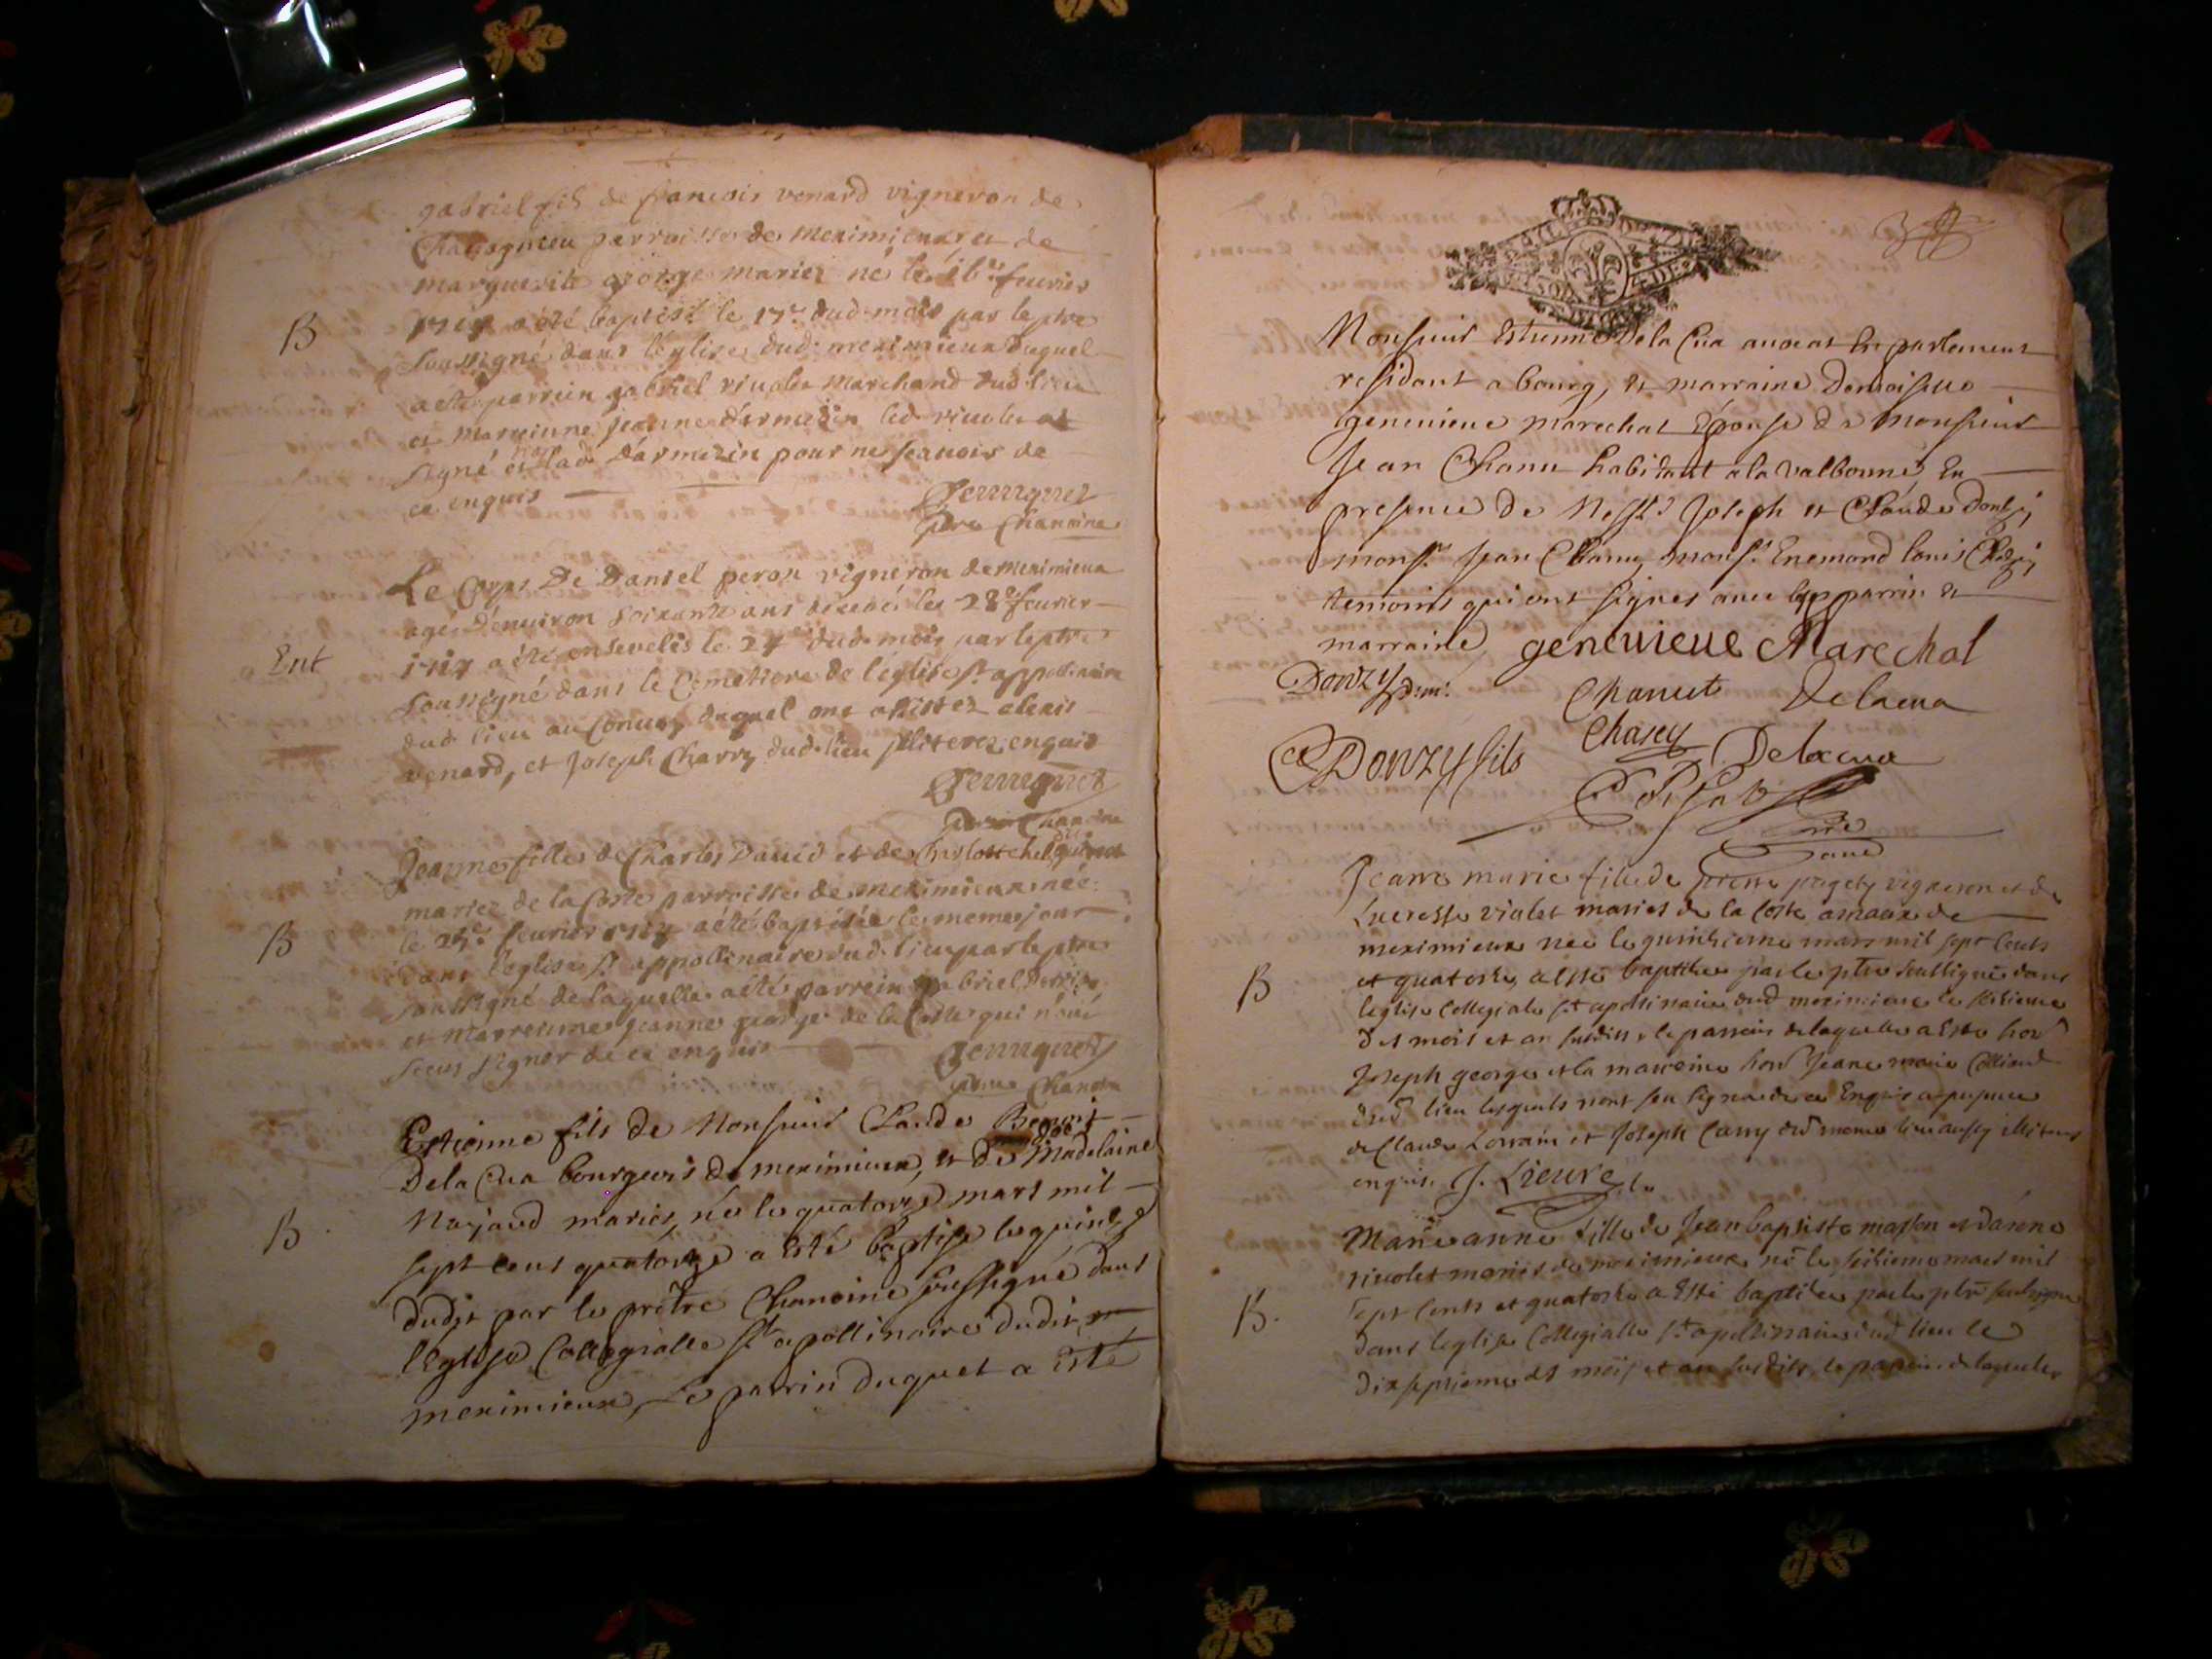 gabriel fils de francois venard vigneron de
Chassagneu parroisse de meximieux et de
marguerite george mariez né le 16e fevrier
B
1714 a été baptisé le 17e dud. mois par le ptre
soussigné dans l'église dud. meximieux duquel
a été parrein gabriel rivolet marchand dud. lieu
et marreinne jeanne darmezin led. rivolet a
signé et non lad. darmezin pour ne sçavoir de
ce enquis
ptre Chanoine
Le Corps De Daniel peron vigneron de meximieux
agé d'environ soixante ans decedé le 23e fevrier
Ent
1714 a été ensevelis le 24e dud. mois par le ptre
soussigné dans le Cemetiere de l'eglise st appollinaire
dud. lieu au Convoy duquel ont assistez alexis
venard, et Joseph Charry dud. lieu illiterez enquis
ptre Chanoine
Jeanne fille de Charles David et de Charlotte
mariez de la Coste parroisse de meximieux née
le 25e fevrier 1714 a été baptisée le meme jour
B
dans l'eglise st appollenaire dud. lieu par le ptre
soussigné de laquelle a été parrein gabriel
et marreinne jeanne george de la Coste qui n'ont
sceus signer de ce enquis
ptre Chanoine
Estienne fils de Monsieur Claude Benoit
Dela Cua bourgeois de meximieux, et de doe Madelaine
Nayaud mariés, né le quatorze mars mil
B.
sept cens quatorze a esté baptisé le quinze
dudit par le prêtre Chanoine soussigné dans
l'Eglise Collegialle st apollinaire dudit
meximieux, Le parrin duquel a esté
Monsieur Estienne Dela Cua avocat En parlement
residant a bourg, et marraine Demoiselle
genevieve maréchal Épouse de Monsieur
Jean Chanu habitant a la valbonne, En
presence de Messrs Joseph et Claude Donzy,
monsr. Jean Chanu, monsr. Enemond louis Chasey
temoins qui ont signés avec les parrin et
marraine genevieve Marechal
Donzy Chanut Delacua
C Donzy fils Chasey Delacua
Jeanne marie fille de pierre pagety vigneron et de
Lucresse violet mariés de la Coste anaux de
meximieux née le quinzieme mars mil sept Cents
B
et quatorze a esté baptisée par le ptre soussigné dans
leglise Collegiale st apollinaire dud meximieux le seizieme
des mois et an susdits, le parrain de laquelle a esté hond
Joseph george et la marreine hond Jeane marie Colliard
dud lieu lesquels n'ont seu signer de ce Enquis en presence
de Claude Lorrain et Joseph Carry dud meme lieu aussy illiteres
enquis. J. Lievre
Marie anne fille de Jean baptiste masson et darene
rivolet mariés de meximieux né le seizieme mars mil
B.
sept Cents et quatorze a esté baptisée par le ptre soussigné
dans leglise Collegialle st apollinaire dud lieu le
dixseptieme des mois et an susdits, le parrein de laquelle